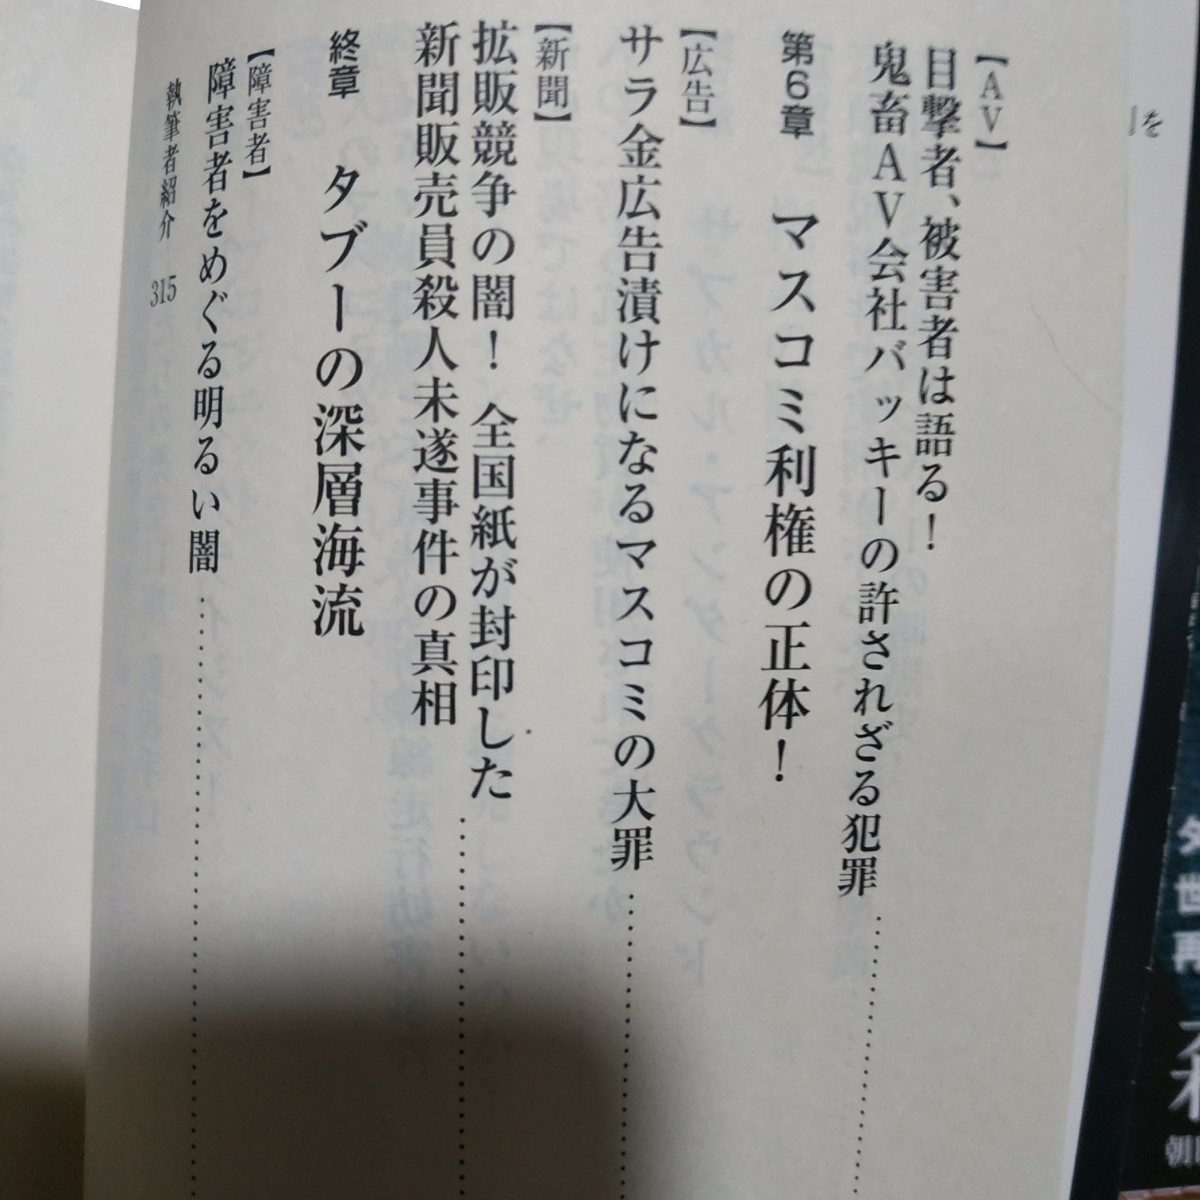 【AV】
目撃者、被害者は語る！
鬼畜AV会社バッキーの許されざる犯罪
第6章　マスコミ利権の正体！
【広告】
サラ金広告漬けになるマスコミの大罪
【新聞】
拡販競争の闇！　全国紙が封印した
新聞販売員殺人未遂事件の真相
終章　タブーの深層海流
【障害者】
障害者をめぐる明るい闇
執筆者紹介　315
を
世
再
朝